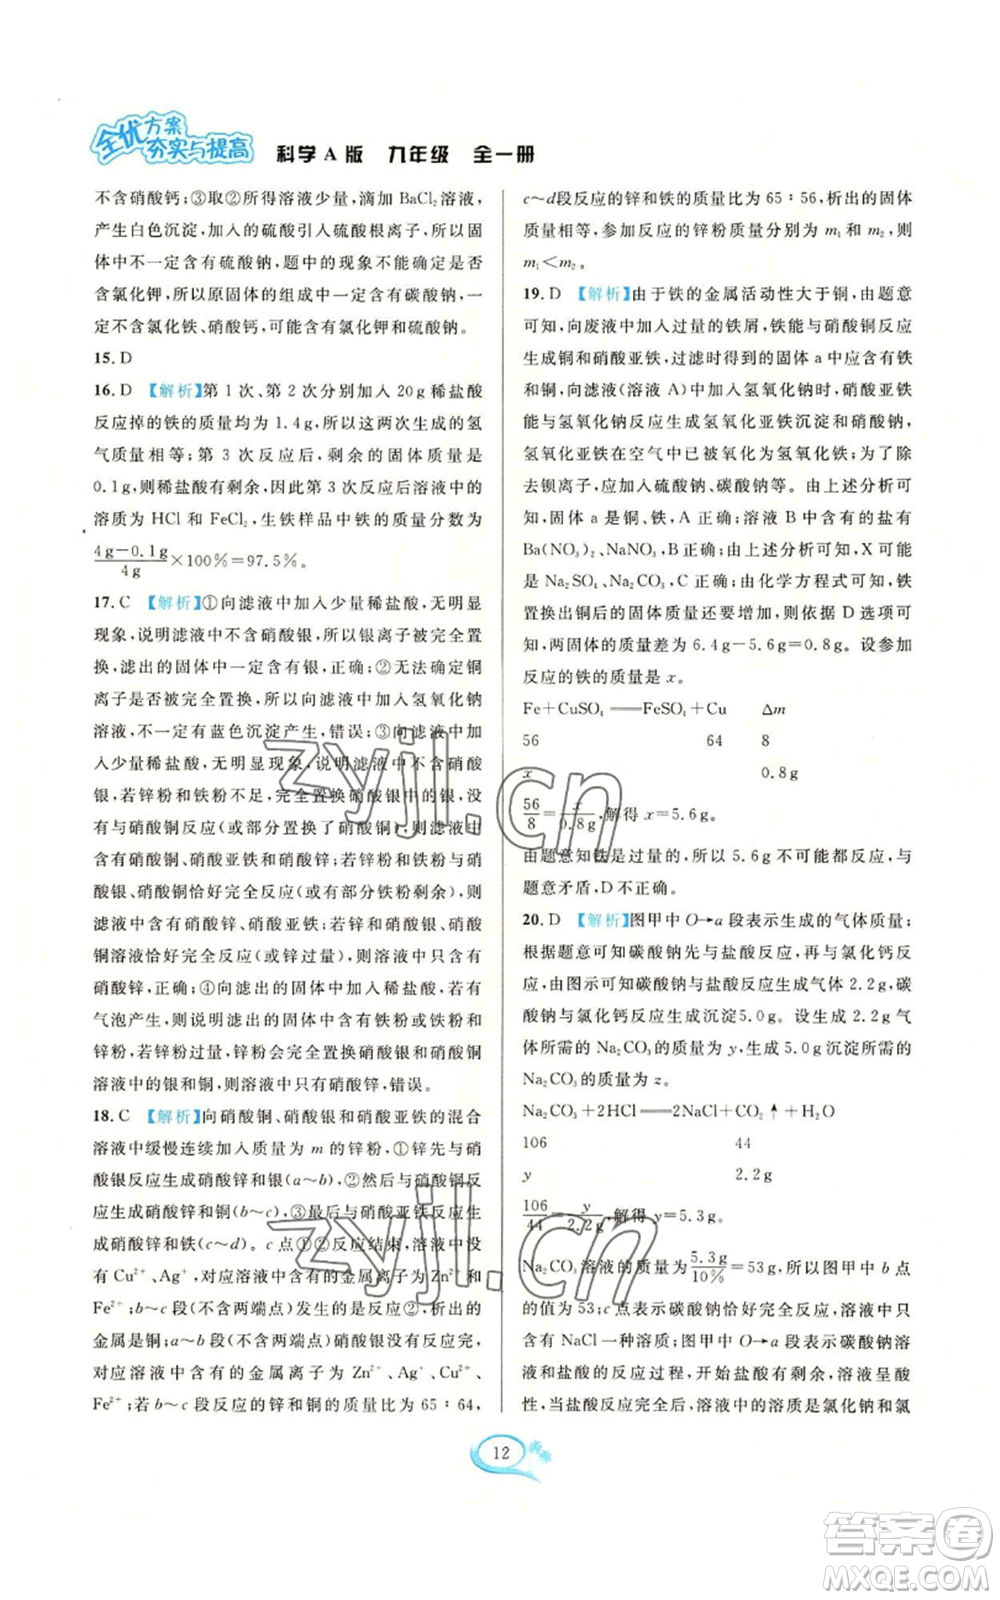 全优方案
夯实与提高
科学 A 版 九年级 全一册
不含硝酸钙;③取②所得溶液少量,滴加 BaCl₂溶液,
产生白色沉淀,加入的硫酸引入硫酸根离子,所以固
体中不一定含有硫酸钠,题中的现象不能确定是否
含氯化钾,所以原固体的组成中一定含有碳酸钠,一
定不含氯化铁、硝酸钙,可能含有氯化钾和硫酸钠。
15. D
16. D 【解析】第 1 次、第 2 次分别加入 20 g 稀盐酸
反应掉的铁的质量均为 1.4 g,所以这两次生成的氢
气质量相等;第 3 次反应后,剩余的固体质量是
0.1 g,则稀盐酸有剩余,因此第 3 次反应后溶液中的
溶质为 HCl 和 FeCl₂,生铁样品中铁的质量分数为
(4 g−0.1 g)/4 g×100%=97.5%。
17. C 【解析】①向滤液中加入少量稀盐酸,无明显
现象,说明滤液中不含硝酸银,银离子被完全置
换,滤出的固体中一定含有银,正确;②无法确定铜
离子是否被完全置换,所以向滤液中加入氢氧化钠
溶液,不一定有蓝色沉淀产生,错误;③向滤液中加
入少量稀盐酸,无明显现象,说明滤液中不含硝酸
银,若锌粉和铁粉不足,完全置换硝酸银溶液后,
没有与硝酸铜反应(或部分置换了硝酸铜),则滤液中
含有硝酸铜、硝酸亚铁和硝酸锌;若锌粉和铁粉与硝
酸银、硝酸铜恰好完全反应(或有部分铁粉剩余),则
滤液中含有硝酸锌、硝酸亚铁;若锌粉与硝酸银、硝酸
铜溶液恰好完全反应(或锌粉剩余),则滤液中含有硝
酸锌,正确;④向滤出的固体中加入稀盐酸,若有
气泡产生,则说明滤出的固体中有铁粉或铁粉和
锌粉,若锌粉过量,锌粉会完全置换硝酸银和硝酸铜
溶液中的银和铜,则溶液中含有硝酸锌,错误。
18. C 【解析】向硝酸铜、硝酸银和硝酸亚铁的混合
溶液中缓慢连续加入质量为 m 的锌粉,①锌先与硝
酸银反应生成硝酸锌和银(a～b),②然后与硝酸铜
反应生成硝酸锌和铜(b～c),③最后与硝酸亚铁反应
生成硝酸锌和铁(c～d)。c 点①②反应结束,溶液中没
有 Cu²⁺、Ag⁺,对应溶液中含有的金属离子是 Zn²⁺和
Fe²⁺;b～c 段(不含两端点)发生的是反应②,析出的
金属是铜;a～b 段(不含两端点)硝酸银没有反应完,
对应溶液中含有的金属离子为 Zn²⁺、Ag⁺、Cu²⁺、
Fe²⁺;若 b～c 段反应的锌和铜的质量比为 65∶64,
c～d段反应的锌和铁的质量比为 65∶56,析出的固体
质量相等,参加反应的锌粉质量分别为 m₁ 和 m₂,则
m₁<m₂。
19. D 【解析】由于铁的金属活动性大于铜,由题意
可知,向废液中加入过量的铁屑,铁能与硝酸铜反应
生成铜和硝酸亚铁,过滤时得到的固体 a 中含有铁
和铜,向滤液(溶液 A)中加入氢氧化钠时,硝酸亚铁
能与氢氧化钠反应生成氢氧化亚铁沉淀和硝酸钠,
氢氧化亚铁在空气中已转化为氢氧化铁;为了除
去钡离子,应加入硫酸钠、碳酸钠等。由上述分析可
知,固体 a 是铜、铁,A 正确;溶液 B 中含有的盐有
Ba(NO₃)₂、NaNO₃,B 正确;由上述分析可知,X 可能
是 Na₂SO₄、Na₂CO₃,C 正确;由化学方程式可知,铁
置换出铜后的固体质量还要增加,依据 D 选项可
知,两固体的质量差为 6.4 g−5.6 g=0.8 g。设参加
反应的铁的质量是 x。
Fe+CuSO₄══FeSO₄+Cu Δm
56 64 8
x 0.8 g
56/8=x/0.8 g,解得 x=5.6 g。
由题意知铁是过量的,所以 5.6 g 不可能都反应,与
题意矛盾,D 不正确。
20. D 【解析】图甲中 O→a 段表示生成的气体质量;
根据题意可知碳酸钠先与盐酸反应,再与氯化钙反
应,由图乙可知,碳酸钠与盐酸反应生成气体 2.2 g,碳
酸钠与氯化钙反应生成沉淀5.0 g。设生成 2.2 g 气
体所需的 Na₂CO₃ 的质量为 y,生成 5.0 g 沉淀所需
Na₂CO₃的质量为 z。
Na₂CO₃+2HCl══2NaCl+CO₂↑+H₂O
106 44
y 2.2 g
106/44=y/2.2 g,解得 y=5.3 g。
Na₂CO₃溶液的质量为5.3 g/10%=53 g;所以图甲中 b 点
的值为 53;c 点表示碳酸钠恰好完全反应,溶液中只
含有 NaCl 一种溶质;图甲中 O→a 段表示碳酸钠溶
液和盐酸的反应过程,开始盐酸有剩余,溶液呈酸
性,当盐酸完全反应时,溶液中的溶质是氯化钠和氯
12
zyjl.cn
zyjl.cn
答案卷
MXQE.COM